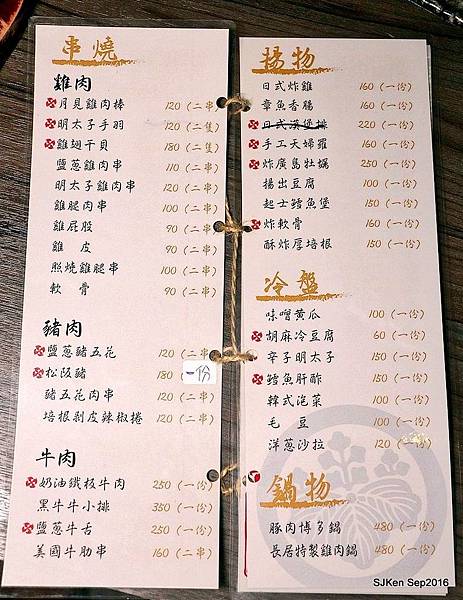 串燒
雞肉
月見雞肉棒 120 (二串
明太子手羽 120 (二隻
雞翅干貝 180 (二隻)
鹽蔥雞肉串 110 (二串)
明太子雞肉串 120 (二串
雞腿肉串 100 (二串)
雞屁股 90 (二串)
雞 皮 90 (二串)
照燒雞腿串 100 (二串)
軟 骨 90 (二串)
豬肉
鹽蔥豬五花 120 (二串
松阪豬 180 一份
豬五花肉串 120 (二串)
培根剝皮辣椒捲 120 (二串)
牛肉
奶油鐵板牛肉 250 (一份)
黑牛牛小排 350 (一份)
鹽蔥牛舌 250 (一份)
美國牛肋串 160 (二串)
揚物
日式炸雞 160 (一份)
章魚香腸 160 (一份)
日式漢堡排 220 (一份)
手工天婦羅 160 (一份)
炸廣島牡蠣 150 (一份)
揚出豆腐 100 (一份)
起士鱈魚堡 150 (一份)
炸軟骨 160 (一份)
酥炸厚培根 150 (一份)
冷盤
味噌黃瓜 100 (一份)
胡麻冷豆腐 60 (一份)
辛子明太子 150 (一份)
鱈魚肝酢 150 (一份)
韓式泡菜 100 (一份)
毛 豆 100 (一份)
洋蔥沙拉 120 (一份)
鍋物
豚肉博多鍋 480 (一份)
長居特製雞肉鍋 480 (一份)
SJKen Sep2016